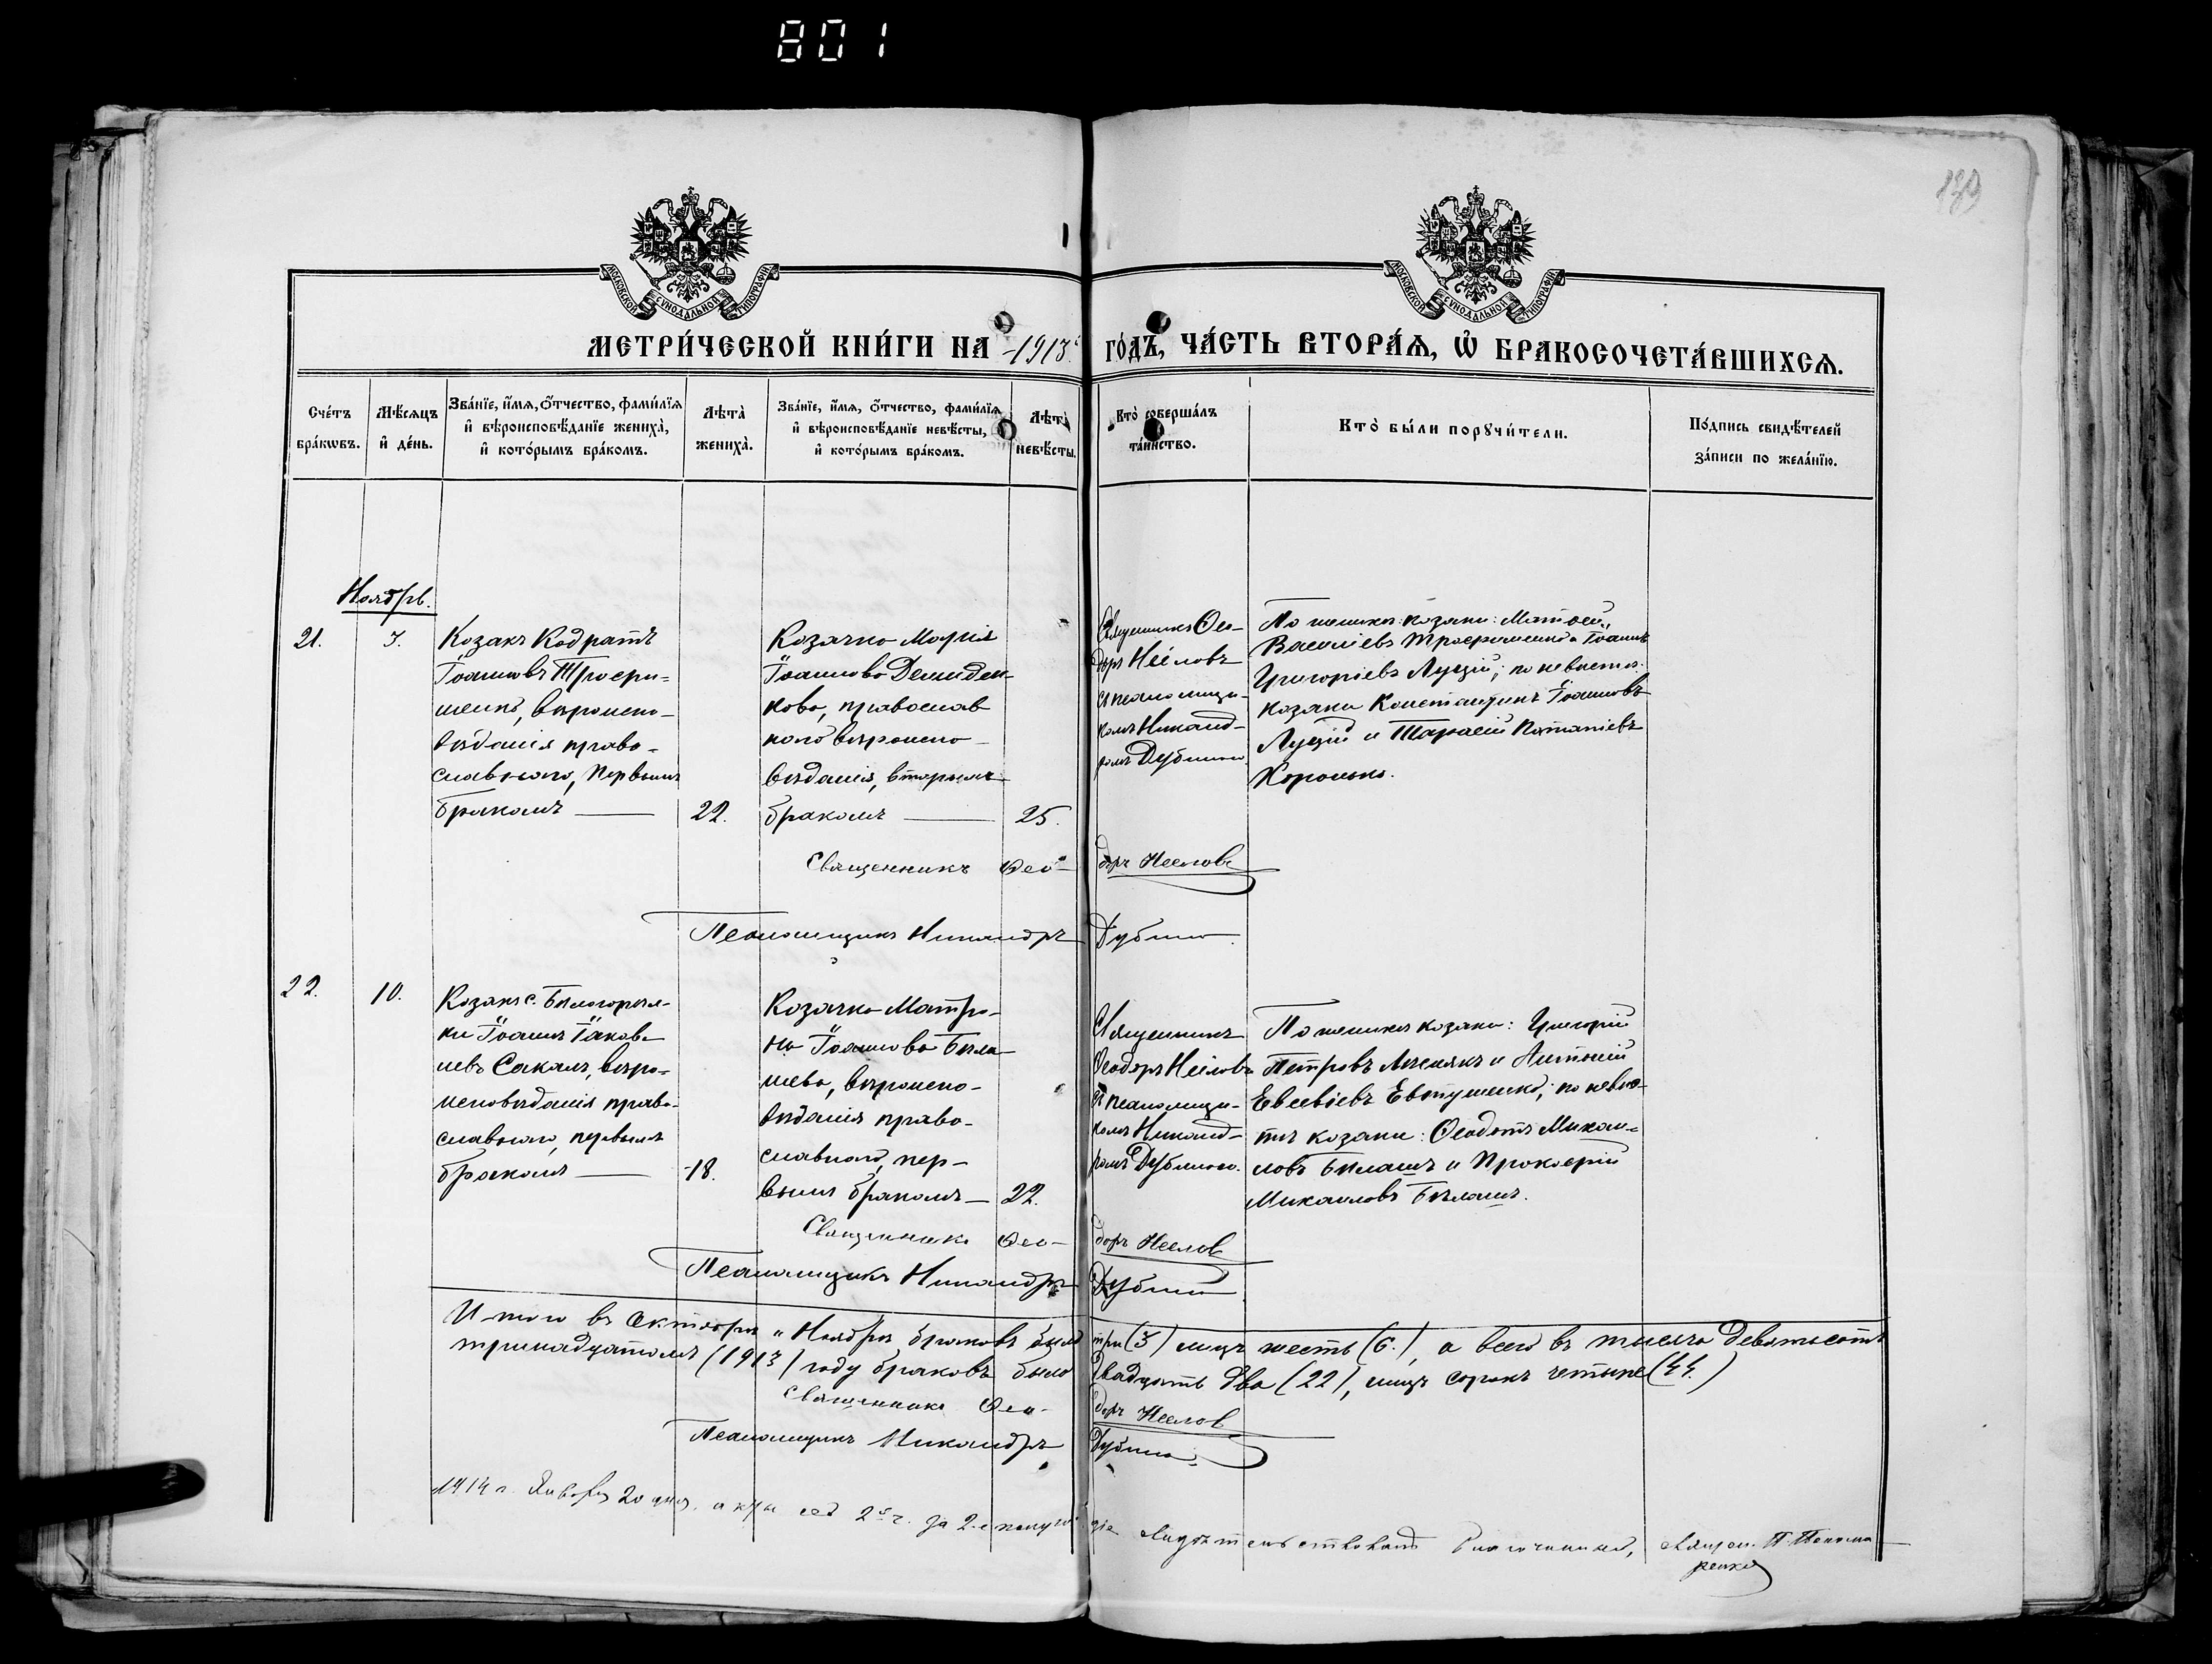 801
МОСКОВСКОЙ СѴНОДАЛЬНОЙ ТИПОГРАФІИ
МОСКОВСКОЙ СѴНОДАЛЬНОЙ ТИПОГРАФІИ
МЕТРИ́ЧЕСКОЙ КНИ́ГИ НА 1913 ГО́ДЪ, ЧА́СТЬ ВТОРА́Ѧ, Ѡ҆ БРАКОСОЧЕТА́ВШИХСѦ.
Сче́тъ
бра́кѡвъ.
Мѣ́сяцъ
и҆ де́нь.
Зва́нїе, и҆́мѧ, ѻ҆́тчество, фами́лїѧ
и҆ вѣроисповѣ́данїе жениха̀,
и҆ кото́рымъ бра́комъ.
Лѣта̀
жениха̀.
Зва́нїе, и҆́мѧ, ѻ҆́тчество, фами́лїѧ
и҆ вѣроисповѣ́данїе невѣ́сты,
и҆ кото́рымъ бра́комъ.
Лѣта̀
невѣ́сты.
Кто̀ соверша́лъ
та́инство.
Кто̀ бы́ли порꙋчи́тели.
По́дпись свидѣ́телей
за́писи по жела́нїю.
Ноябрь.
21.
3.
Козакъ Кодратъ
Іоанновъ Трофи-
менко, вѣроиспо-
вѣданія право-
славнаго, первымъ
бракомъ
22.
Козачка Марія
Іоаннова Демиден-
кова, православ
наго вѣроиспо-
вѣданія, вторымъ
бракомъ
25.
Священникъ Ѳео-
доръ Нееловъ
съ псаломщи-
комъ Никанд-
ромъ Дубиною
По женихѣ козаки: Матѳей
Василіевъ Трофименко и Іоаннъ
Григоріевъ Луцій; по невѣстѣ
козаки Константинъ Іоанновъ
Луцій и Тарасій Потапіевъ
Священникъ Ѳеодоръ Нееловъ
Псаломщикъ Никандръ Дубина.
22.
10.
Козакъ с. Бѣлогорѣл-
ки Іоаннъ Іаковле-
невъ Сакалъ, вѣро-
исповѣданія право-
славнаго, первымъ
бракомъ
18.
Козачка Матро-
на Іоаннова Била-
шева, вѣроиспо-
вѣданія право-
славнаго, пер-
вымъ бракомъ
22.
Священникъ
Ѳеодоръ Нееловъ
съ псаломщи-
комъ Никанд-
ромъ Дубиною.
По женихѣ козаки: Григорій
Петровъ и Антоній
Евсевіевъ Евтушенко; по невѣс-
тѣ козаки: Ѳеодотъ Михаи-
ловъ Билашъ и Прокофій
Михаиловъ Билашъ.
Священникъ Ѳеодоръ Неелов
Псаломщикъ Никандръ Дубина
Итого въ Октябрѣ и Ноябрѣ браковъ было три (3) лицъ шесть (6.), а всего въ тысяча девятьсотъ
тринадцатомъ (1913) году браковъ было двадцать два (22), лицъ сорокъ четыре (44.)
Священникъ Ѳеодоръ Неелов
Псаломщикъ Никандръ Дубина
1914 г. Января 20 дня. 2-й ч. за 2-е полугодіе свидѣтельствовалъ Благочинный, Священ. П. Пономаренко